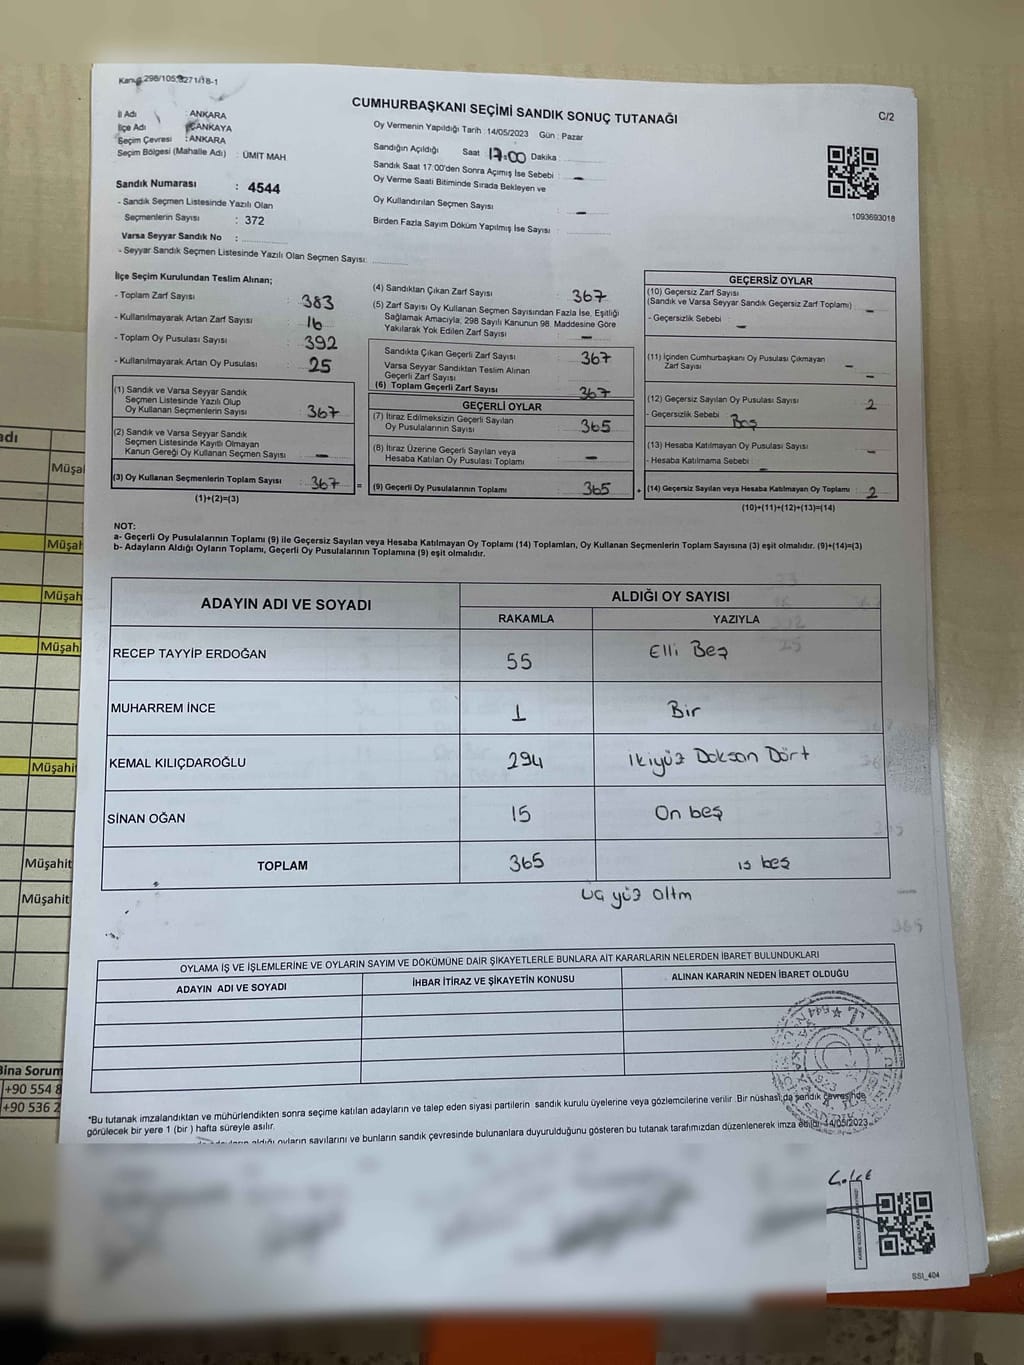 Kanun 298/105,6271/18-1
CUMHURBAŞKANI SEÇİMİ SANDIK SONUÇ TUTANAĞI
C/2
İl Adı : ANKARA
İlçe Adı : ÇANKAYA
Seçim Çevresi : ANKARA
Seçim Bölgesi (Mahalle Adı) : ÜMİT MAH
Sandık Numarası : 4544
- Sandık Seçmen Listesinde Yazılı Olan
Seçmenlerin Sayısı : 372
Varsa Seyyar Sandık No :
- Seyyar Sandık Seçmen Listesinde Yazılı Olan Seçmen Sayısı:
Oy Vermenin Yapıldığı Tarih : 14/05/2023 Gün : Pazar
Sandığın Açıldığı Saat 17:00 Dakika
Sandık Saat 17:00'den Sonra Açımış İse Sebebi : -
Oy Verme Saati Bitiminde Sırada Bekleyen ve
Oy Kullandırılan Seçmen Sayısı : -
Birden Fazla Sayım Döküm Yapılmış İse Sayısı :
1093693018
İlçe Seçim Kurulundan Teslim Alınan;
- Toplam Zarf Sayısı : 383
- Kullanılmayarak Artan Zarf Sayısı : 16
- Toplam Oy Pusulası Sayısı : 392
- Kullanılmayarak Artan Oy Pusulası : 25
(1) Sandık ve Varsa Seyyar Sandık
Seçmen Listesinde Yazılı Olup
Oy Kullanan Seçmenlerin Sayısı : 367
(2) Sandık ve Varsa Seyyar Sandık
Seçmen Listesinde Kayıtlı Olmayan
Kanun Gereği Oy Kullanan Seçmen Sayısı : -
(3) Oy Kullanan Seçmenlerin Toplam Sayısı : 367 =
(1)+(2)=(3)
(4) Sandıktan Çıkan Zarf Sayısı : 367
(5) Zarf Sayısı Oy Kullanan Seçmen Sayısından Fazla İse, Eşitliği
Sağlamak Amacıyla, 298 Sayılı Kanunun 98. Maddesine Göre
Yakılarak Yok Edilen Zarf Sayısı : -
Sandıkta Çıkan Geçerli Zarf Sayısı : 367
Varsa Seyyar Sandıktan Teslim Alınan
Geçerli Zarf Sayısı :
(6) Toplam Geçerli Zarf Sayısı : 367
GEÇERLİ OYLAR
(7) İtiraz Edilmeksizin Geçerli Sayılan
Oy Pusulalarının Sayısı : 365
(8) İtiraz Üzerine Geçerli Sayılan veya
Hesaba Katılan Oy Pusulası Toplamı : -
(9) Geçerli Oy Pusulalarının Toplamı : 365 +
GEÇERSİZ OYLAR
(10) Geçersiz Zarf Sayısı
(Sandık ve Varsa Seyyar Sandık Geçersiz Zarf Toplamı) : -
- Geçersizlik Sebebi : -
(11) İçinden Cumhurbaşkanı Oy Pusulası Çıkmayan
Zarf Sayısı -
(12) Geçersiz Sayılan Oy Pusulası Sayısı : 2
- Geçersizlik Sebebi : Boş
(13) Hesaba Katılmayan Oy Pusulası Sayısı : -
- Hesaba Katılmama Sebebi : -
(14) Geçersiz Sayılan veya Hesaba Katılmayan Oy Toplamı : 2
(10)+(11)+(12)+(13)=(14)
NOT:
a- Geçerli Oy Pusulalarının Toplamı (9) ile Geçersiz Sayılan veya Hesaba Katılmayan Oy Toplamı (14) Toplamları, Oy Kullanan Seçmenlerin Toplam Sayısına (3) eşit olmalıdır. (9)+(14)=(3)
b- Adayların Aldığı Oyların Toplamı, Geçerli Oy Pusulalarının Toplamına (9) eşit olmalıdır.
ADAYIN ADI VE SOYADI
ALDIĞI OY SAYISI
RAKAMLA YAZIYLA
RECEP TAYYİP ERDOĞAN 55 Elli Beş
MUHARREM İNCE 1 Bir
KEMAL KILIÇDAROĞLU 294 İkiyüz Doksan Dört
SİNAN OĞAN 15 On beş
TOPLAM 365 ıs beş
üç yüz altm
OYLAMA İŞ VE İŞLEMLERİNE VE OYLARIN SAYIM VE DÖKÜMÜNE DAİR ŞİKAYETLERLE BUNLARA AİT KARARLARIN NELERDEN İBARET BULUNDUKLARI
ADAYIN ADI VE SOYADI İHBAR İTİRAZ VE ŞİKAYETİN KONUSU ALINAN KARARIN NEDEN İBARET OLDUĞU
*Bu tutanak imzalandıktan ve mühürlendikten sonra seçime katılan adayların ve talep eden siyasi partilerin sandık kurulu üyelerine veya gözlemcilerine verilir. Bir nüshası da sandık çevresinde
görülecek bir yere 1 (bir ) hafta süreyle asılır.
aldığı oyların sayılarını ve bunların sandık çevresinde bulunanlara duyurulduğunu gösteren bu tutanak tarafımızdan düzenlenerek imza edildi. 14/05/2023
SSI_404
adı
Müşa
Müşah
Müşah
Müşahi
Müşahit
Müşahit
Müşahit
Bina Sorum
+90 554 8
+90 536 2